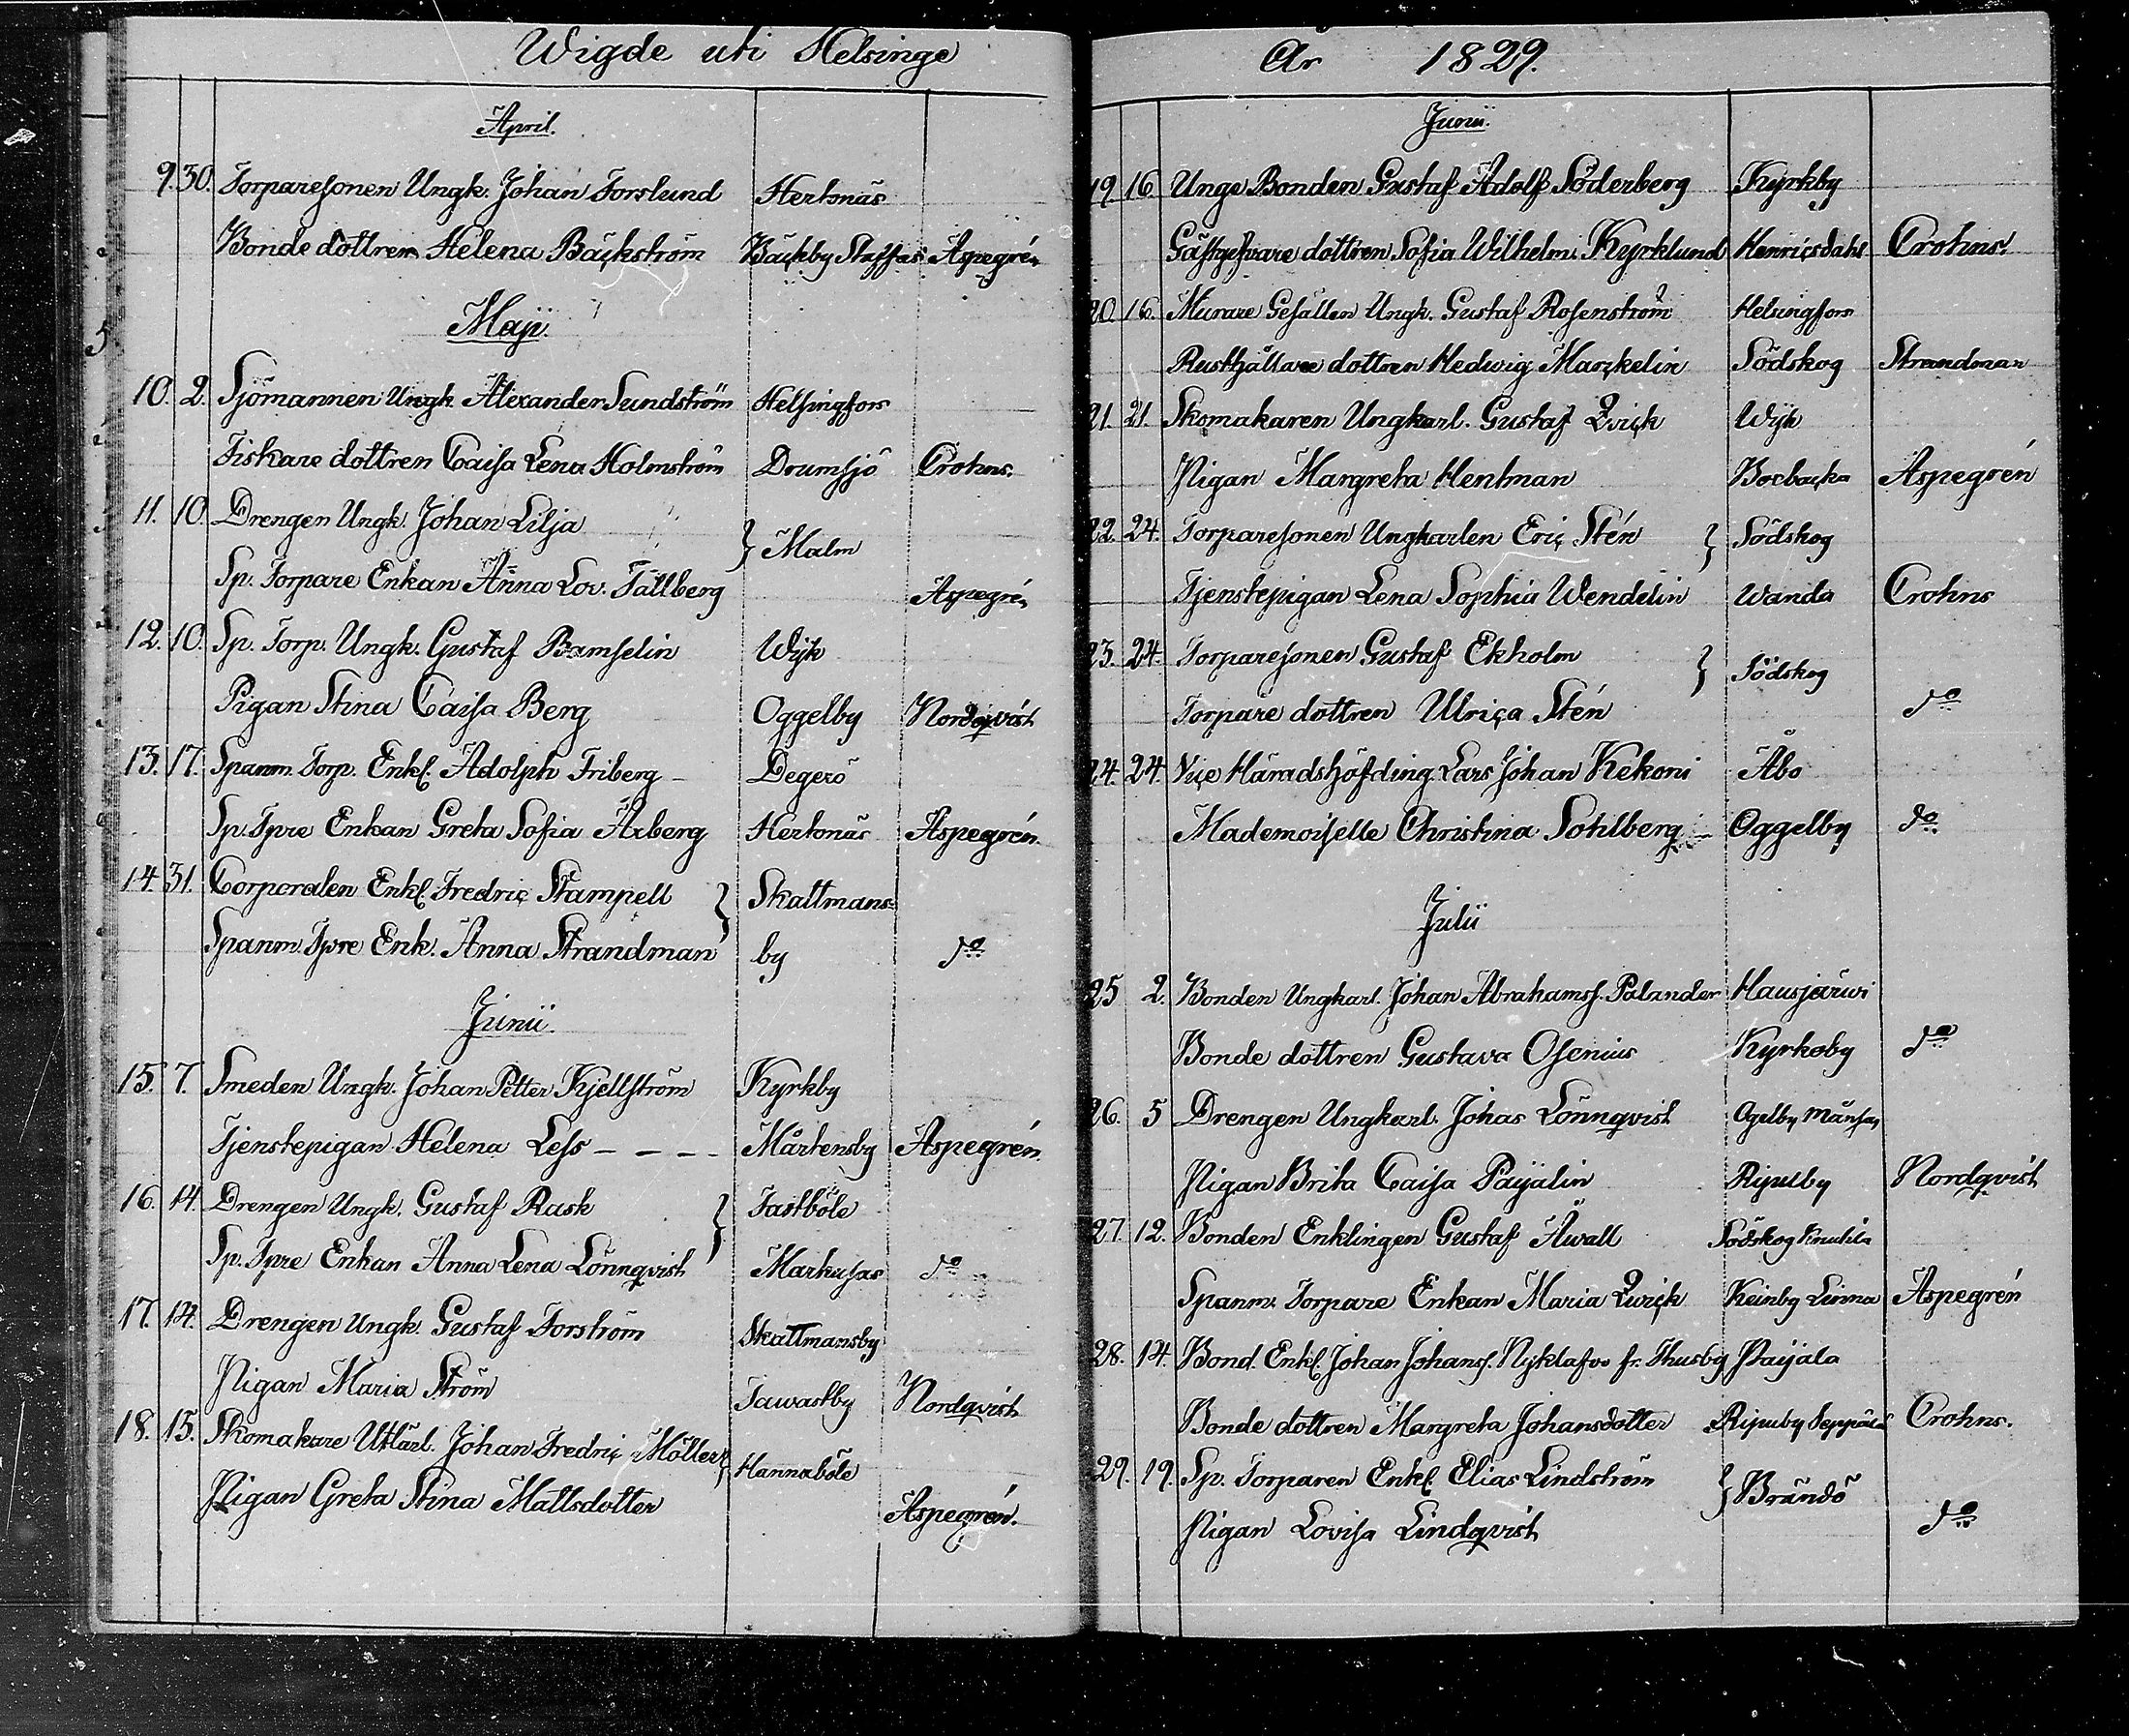 Wigde uti Helsinge
April.
9. 30. Torparesonen Ungk. Johan Forslund Hertonäs
Bonde dottren Helena Bäckström Backby Staffas Aspegrén
Maji.
10. 2. Sjömannen Ungk. Alexander Sundström Helsingfors
Fiskare dottren Caisa Lena Holmström Drumsjö Crohns.
11. 10. Drengen Ungk. Johan Lilja } Malm
Sp. Torpare Enkan Anna Lov. Tallberg Aspegrén
12. 10. Sp. Torp. Ungk. Gustaf Bamselin Wijk
Pigan Stina Caisa Berg Oggelby Nordqvist
13. 17. Spanm. Torp. Enkl. Adolph Friberg Degerö
Sp. Tpre Enkan Greta Sofia Arberg Hertonäs Aspegrén.
14. 31. Corporalen Enkl. Fredric Stampell } Skattmans-
Spanm. Tpre Enk. Anna Strandman by do
Junii
15. 7. Smeden Ungk. Johan Petter Kjellström Kyrkby
Tjenstepigan Helena Less - - - - Mårtensby Aspegrén.
16. 14. Drengen Ungk. Gustaf Rask } Tastböle
Sp. Tpre Enkan Anna Lena Lönnqvist Markusas do
17. 14. Drengen Ungk. Gustaf Forström Skattmansby
Pigan Maria Ström Tawastby Nordqvist
18. 15. Skomakare Utlärl. Johan Fredric Möller } Hannaböle
Pigan Greta Stina Mattsdotter Aspegrén.
År 1829.
Junii.
19. 16. Unge Bonden Gustaf Adolf Söderberg Kyrkby
Gästgifvare dottren Sofia Wilhelm. Kyrklund Henricsdahl Crohns.
20. 16. Murare Gesällen Ungk. Gustaf Rosenström Helsingfors
Rusthållare dottren Hedwig Marckelin Södskog Strandman
21. 21. Skomakaren Ungkarl. Gustaf Qvick Wijk
Pigan Margreta Hentman Bocbacka Aspegrén
22. 24. Torparesonen Ungkarlen Eric Stén } Södskog
Tjenstepigan Lena Sophia Wendelin Wanda Crohns
23. 24. Torparesonen Gustaf Ekholm } Södskog
Torpare dottren Ulrica Stén do
24. 24. Vice Häradshöfding Lars Johan Kekoni Åbo
Mademoiselle Christina Sohlberg Oggelby do
Julii
25 2. Bonden Ungkarl. Johan Abrahamss. Palander Hausjärwi
Bonde dottren Gustava Osenius Kyrkoby do
26. 5 Drengen Ungkarl. Johas Lönnqvist Ogelby Månsas
Pigan Brita Caisa Paijalin Ripuby Nordqvist
27. 12. Bonden Enklingen Gustaf Åwall Södskog Knutila
Spanm. Torpare Enkan Maria Qwick Keinby Linma Aspegrén
28. 14. Bond. Enkl. Johan Johanss. Nyklafvo fr. Thusby Paijala
Bonde dottren Margreta Johansdotter Ripuby Seppälä Crohns.
29. 19. Sp. Torparen Enkl. Elias Lindström } Brändö
Pigan Lovisa Lindqvist do